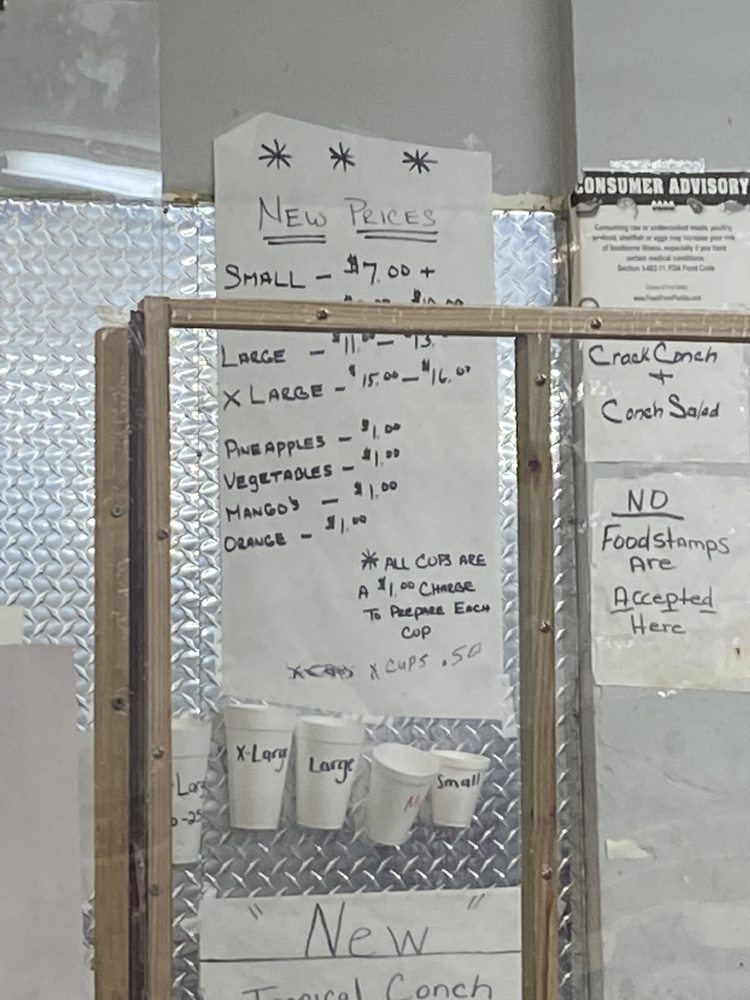 * * *
NEW PRICES
SMALL - $7.00 +
LARGE - $11.00 - $13.
X LARGE - $15.00 - $16.00
PINEAPPLES - $1.00
VEGETABLES - $1.00
MANGO'S - $1.00
ORANGE - $1.00
* ALL CUPS ARE
A $1.00 CHARGE
TO PREPARE EACH
CUP
X CUPS .50
X-Large
Large
Small
"New"
Tropical Conch
CONSUMER ADVISORY
Consuming raw or undercooked meats, poultry,
seafood, shellfish or eggs may increase your risk
of foodborne illness, especially if you have
certain medical conditions.
Section 3-603.11, FDA Food Code
www.FreshFromFlorida.com
Crack Conch
+
Conch Salad
NO
Foodstamps
Are
Accepted
Here